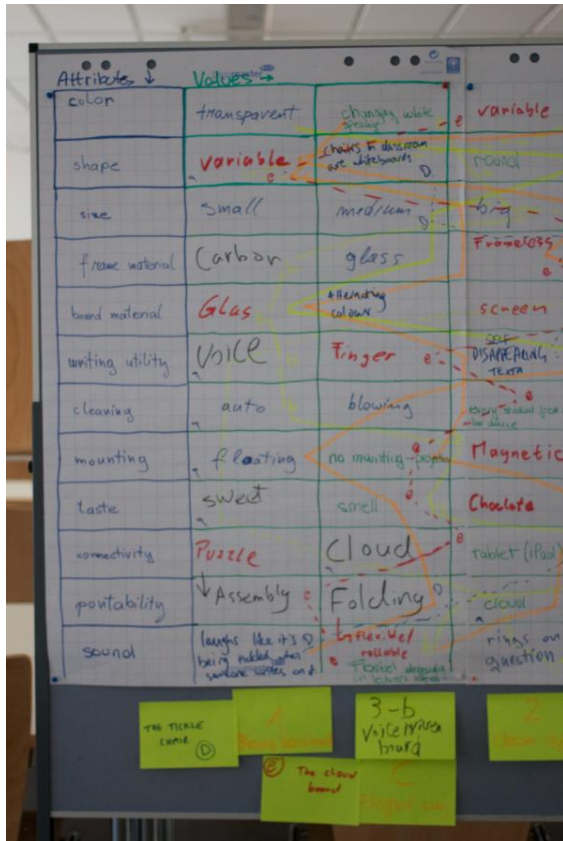 Attributes ↓ Values →
color transparent changing while variable
speaking
shape variable chairs in classroom round
are whiteboards
D.
e
size small medium big
D.
frame material Carbon glass Frameless
board material Glas Alternating screen
colours
writing utility VOICE Finger self
DISAPPEARING
TEXTA
e
cleaning auto blowing
mounting floating no mounting → projection Magnetic
taste sweet smell Choclate
connectivity Puzzle Cloud tablet (iPad)
portability ↓ Assembly Folding cloud
sound laughs like it's flexible/ rings on
being rubbed when rollable question
someone writes on it
THE TICKLE
CHAIR
D
1
3-b
Voice driven
board
2
e The cloud
board
C